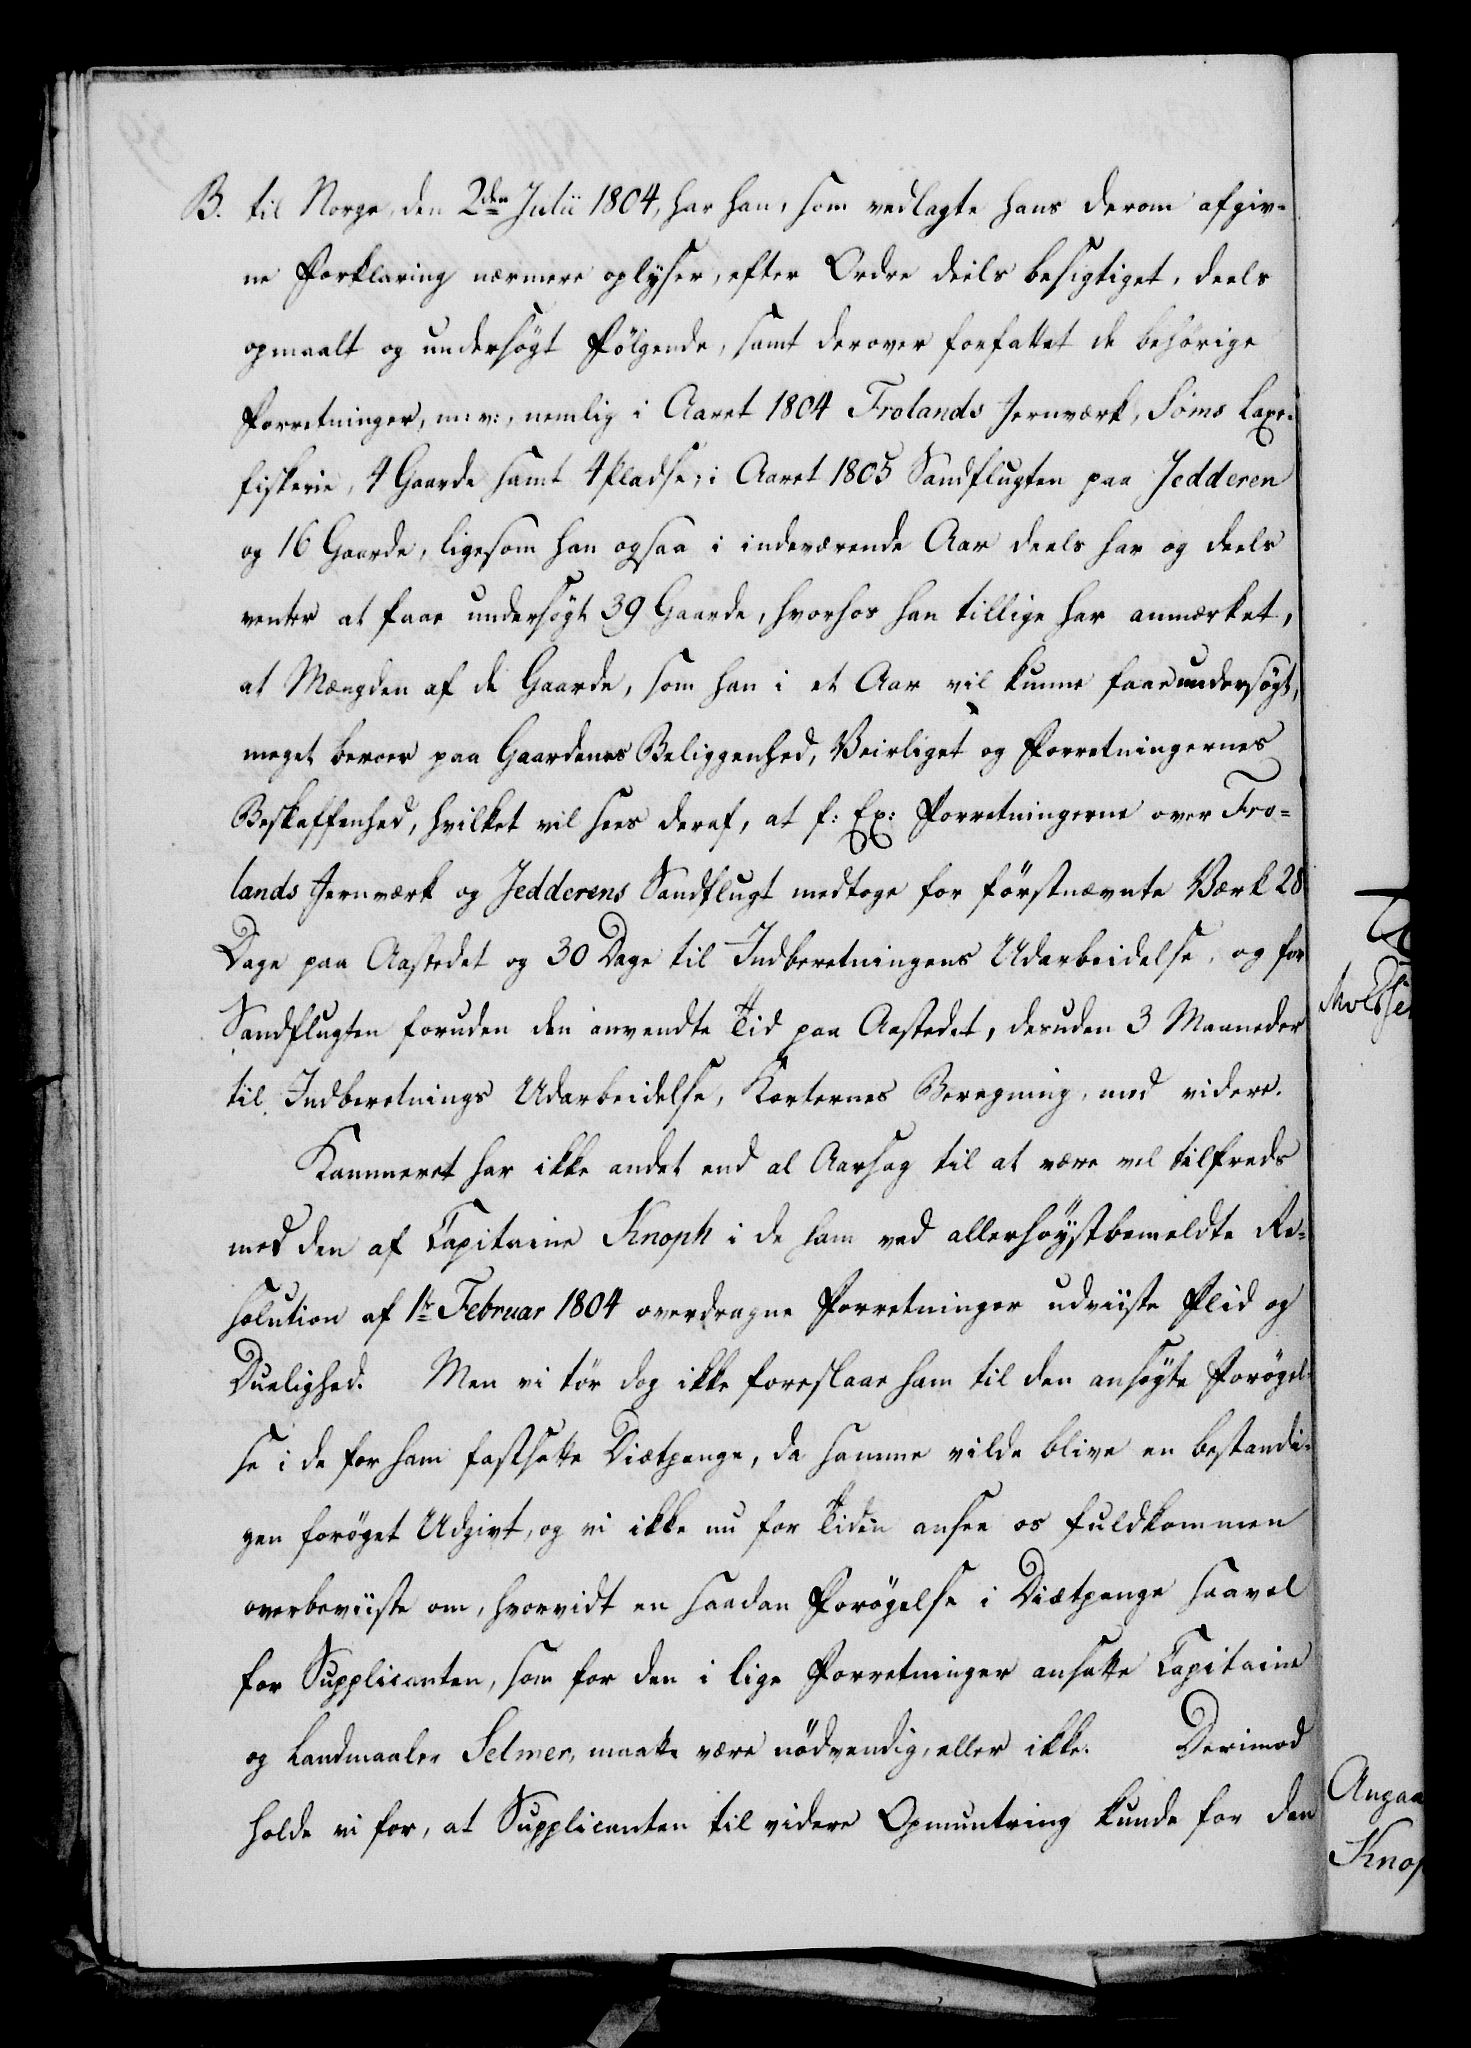 B. til Norge, den 2den Julii 1804, har han, som vedlagte hans derom afgiv-
ne Forklaring nærmere oplyser, efter Ordre deels besigtiget, deels
opmaalt og undersøgt følgende, samt derover forfattet de behörige
Forretninger, m: v:, nemlig i Aaret 1804 Frolands Jernværk, Söms Laxe-
fiskerie, 4 Gaarde samt 4 Pladse; i Aaret 1805 Sandflugten paa Jedderen
og 16 Gaarde, ligesom han ogsaa i indeværende Aar deels har og deels
venter at faae undersøgt 39 Gaarde, hvorhos han tillige har anmærket,
at Mængden af de Gaarde, som han i et Aar vil kunne faae undersøgt,
meget beroer paa Gaardenes Beliggenhed, Veirliget og Forretningernes
Beskaffenhed, hvilket vil sees deraf, at f: Ex: Forretningerne over Fro-
lands Jernværk og Jedderens Sandflugt medtoge for förstnævnte Værk 28
Dage paa Aastedet og 30 Dage til Indberetningens Udarbeidelse, og for
Sandflugten foruden den anvendte Tid paa Aastedet, desuden 3 Maaneder
til Indberetnings Udarbeidelse, Karternes Beregning, med videre.
Kammeret har ikke andet end al Aarsag til at være vel tilfreds
med den af Capitaine Knoph i de ham ved allerhöystbemeldte Re-
solution af 1te Februar 1804 overdragne Forretninger udviiste Flid og
Duelighed. Men vi tör dog ikke foreslaae ham til den ansögte Forögel-
se i de for ham fastsatte Diætpenge, da samme vilde blive en bestandi-
gen foröget Udgivt, og vi ikke nu for Tiden ansee os fuldkommen
overbeviiste om, hvorvidt en saadan Forögelse i Diætpenge saavel
for Supplicanten, som for den i lige Forretninger ansatte Capitaine
og Landmaaler Selmer, maatte være nödvendig, eller ikke. Derimod
holde vi for, at Supplicanten til videre Opmuntring kunde for den
Angaa
Knop